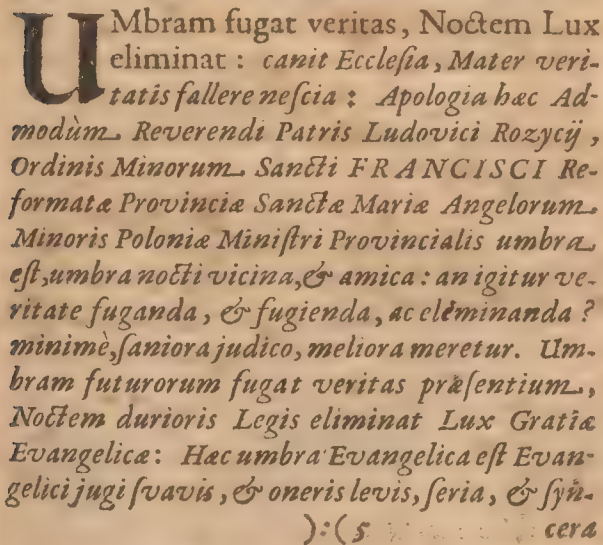 UMbram fugat veritas, Noctem Lux
eliminat: canit Ecclesia, Mater veri-
tatis fallere nescia: Apologia hæc Ad-
modùm Reverendi Patris Ludovici Rozycij,
Ordinis Minorum Sancti FRANCISCI Re-
formatæ Provinciæ Sanctæ Mariæ Angelorum
Minoris Poloniæ Ministri Provincialis umbra
est, umbra nocti vicina, & amica: an igitur ve-
ritate fuganda, & fugienda, ac eleminanda?
minimè, saniora judico, meliora meretur. Um-
bram futurorum fugat veritas præsentium,
Noctem durioris Legis eliminat Lux Gratiæ
Evangelicæ: Hæc umbra Evangelica est Evan-
gelici jugi svavis, & oneris levis, seria, & syn-
):( 5 cera